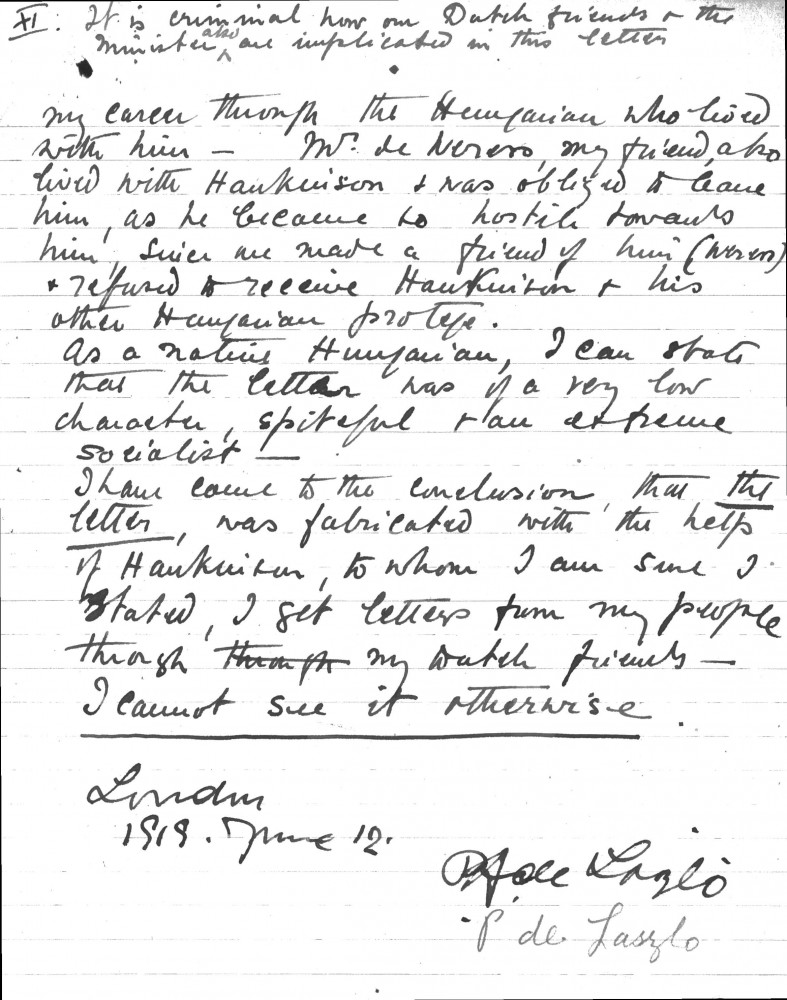 XI. It is criminal how our Dutch friends & the
Minister also are implicated in this letter
my career through the Hungarian who lived
with him — Mr. de Nereus, my friend, also
lived with Hankinson & was obliged to leave
him, as he became so hostile towards
him, since we made a friend of him (Nereus)
& refused to receive Hankinson & his
other Hungarian protege.
As a native Hungarian, I can state
that the letter was of a very low
character, spiteful & an extreme
socialist —
I have come to the conclusion, that the
letter, was fabricated with the help
of Hankinson, to whom I am sure I
stated, I get letters from my people
through through my Dutch friends —
I cannot see it otherwise.
London
1919. June 12.
P A de László
P de Laszlo